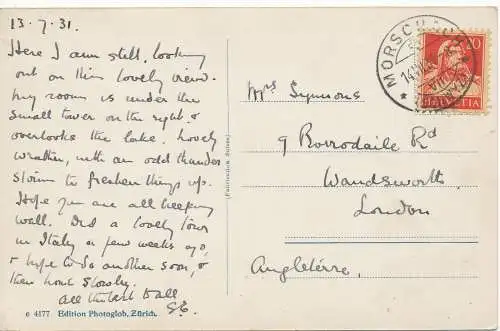 13.7.31.
Here I am still, looking
out on this lovely view.
My room is under the
small tower on the right &
overlooks the lake. Lovely
weather, with an odd thunder
storm to freshen things up.
Hope you are all keeping
well. Did a lovely tour
in Italy a few weeks ago,
& hope to do another soon, &
then home slowly.
All the best to all
e 4177 Edition Photoglob, Zürich.
MORSCHACH
HELVETIA
Mrs Symons
9 Rd
Wandsworth
London
Angleterre.